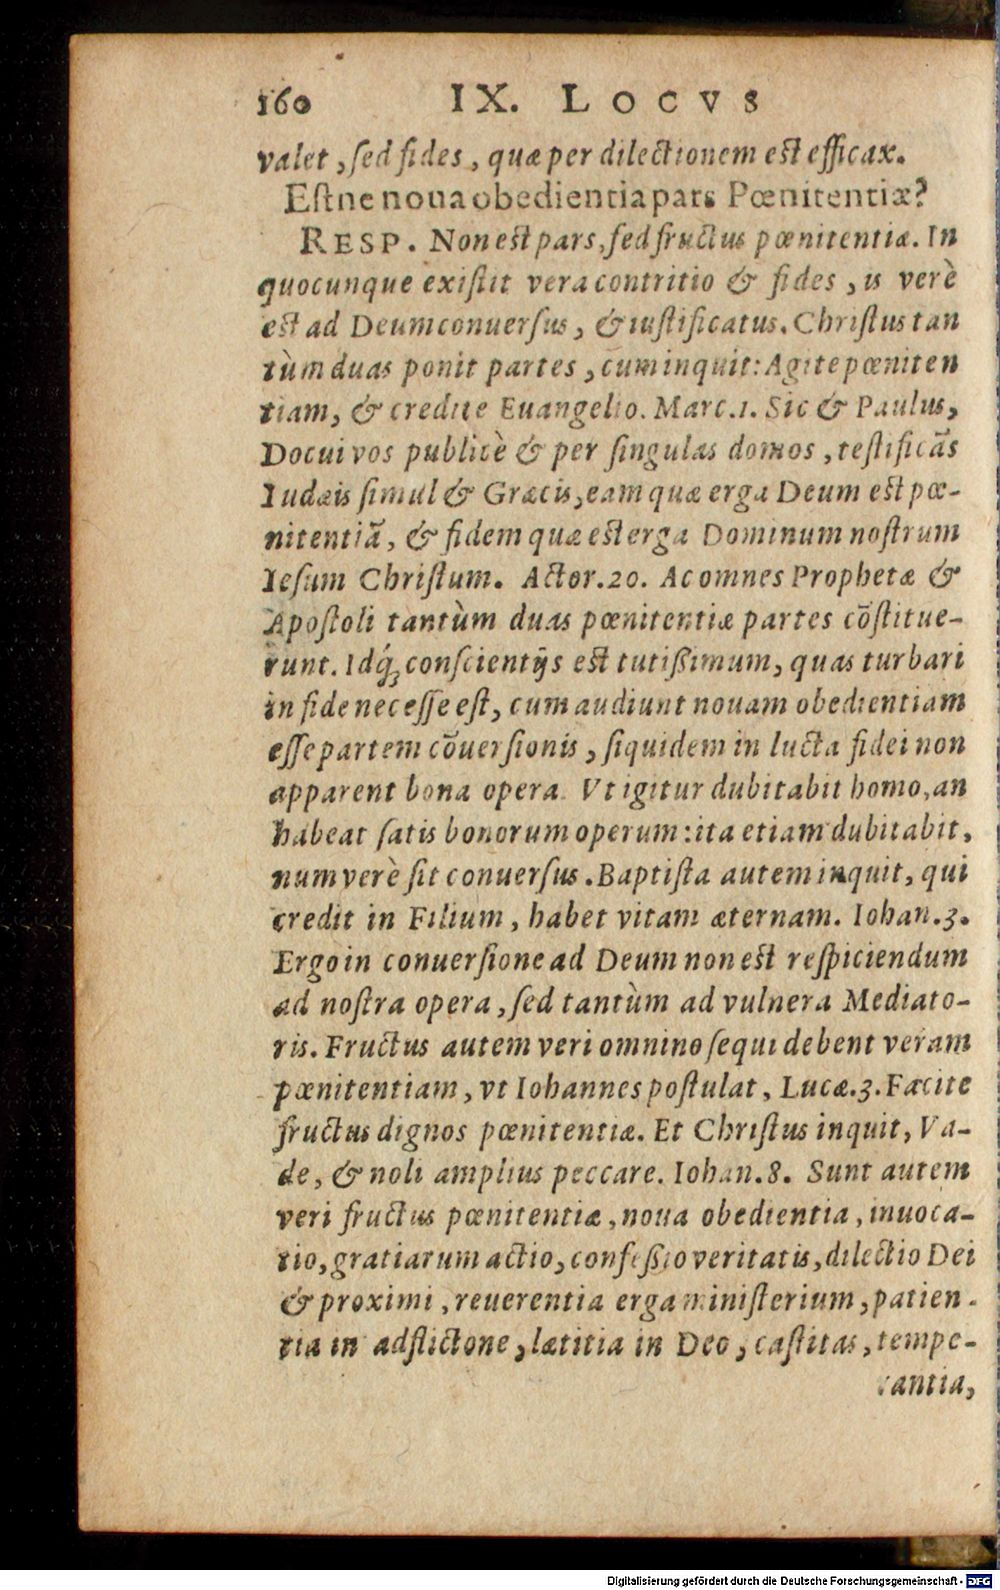 160 IX. LOCVS
valet, ſed fides, quæ per dilectionem eſt efficax.
Eſtne noua obedientia pars Pœnitentiæ?
RESP. Non eſt pars, ſed fructus pœnitentiæ. In
quocunque exiſtit vera contritio & fides, is verè
eſt ad Deum conuerſus, & iuſtificatus. Chriſtus tan
tùm duas ponit partes, cum inquit: Agite pœniten
tiam, & credite Euangelio. Marc. 1. Sic & Paulus,
Docui vos publicè & per ſingulas domos, teſtificãs
Iudæis ſimul & Græcis, eam quæ erga Deum eſt pœ-
nitentiã, & fidem quæ eſt erga Dominum noſtrum
Ieſum Chriſtum. Actor. 20. Ac omnes Prophetæ &
Apoſtoli tantùm duas pœnitentiæ partes cõſtitue-
runt. Idq́; conſcientijs eſt tutißimum, quas turbari
in fide neceſſe eſt, cum audiunt nouam obedientiam
eſſe partem cõuerſionis, ſiquidem in lucta fidei non
apparent bona opera. Vt igitur dubitabit homo, an
habeat ſatis bonorum operum: ita etiam dubitabit,
num verè ſit conuerſus. Baptiſta autem inquit, qui
credit in Filium, habet vitam æternam. Iohan. 3.
Ergo in conuerſione ad Deum non eſt reſpiciendum
ad noſtra opera, ſed tantùm ad vulnera Mediato-
ris. Fructus autem veri omnino ſequi debent veram
pœnitentiam, vt Iohannes poſtulat, Lucæ. 3. Facite
fructus dignos pœnitentiæ. Et Chriſtus inquit, Va-
de, & noli amplius peccare. Iohan. 8. Sunt autem
veri fructus pœnitentiæ, noua obedientia, inuoca-
tio, gratiarum actio, confeßio veritatis, dilectio Dei
& proximi, reuerentia erga miniſterium, patien-
tia in adflictone, lætitia in Deo, caſtitas, tempe-
rantia,
Digitalisierung gefördert durch die Deutsche Forschungsgemeinschaft - DFG